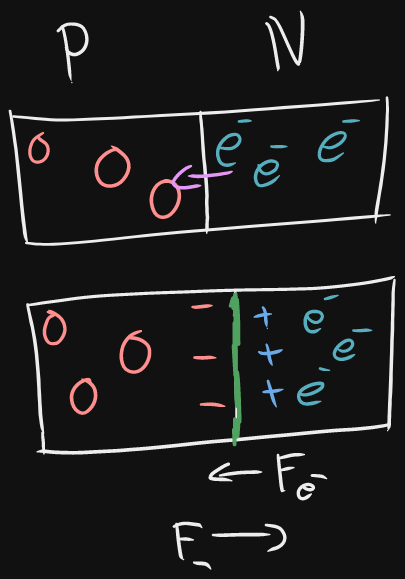 P N
O O O e⁻ e⁻ e⁻
O - + e⁻
O - + e⁻
O - + e⁻
← Fe⁻
F_ →